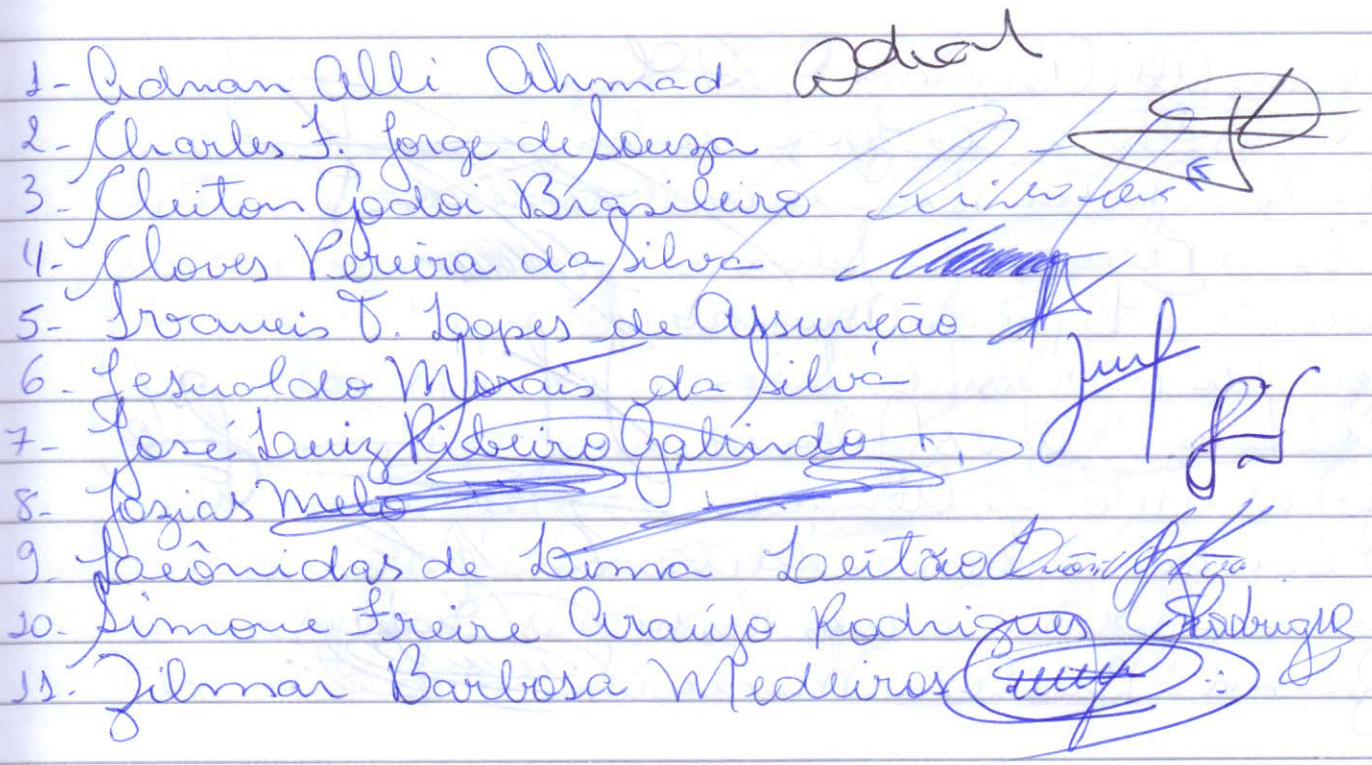 1- Adnan Alli Ahmad
2- Charles F. Jorge de Souza
3- Cleiton Godoi Brasileiro
4- Cloves Pereira da Silva
5- Ivaneis V. Lopes de Assunção
6- Jesualdo Morais da Silva
7- José Luiz Ribeiro Galindo
8- Jozias Melo
9- Leônidas de Lima Leitão
10- Simone Freire Araújo Rodrigues SRodrigues
11- Zilmar Barbosa Medeiros